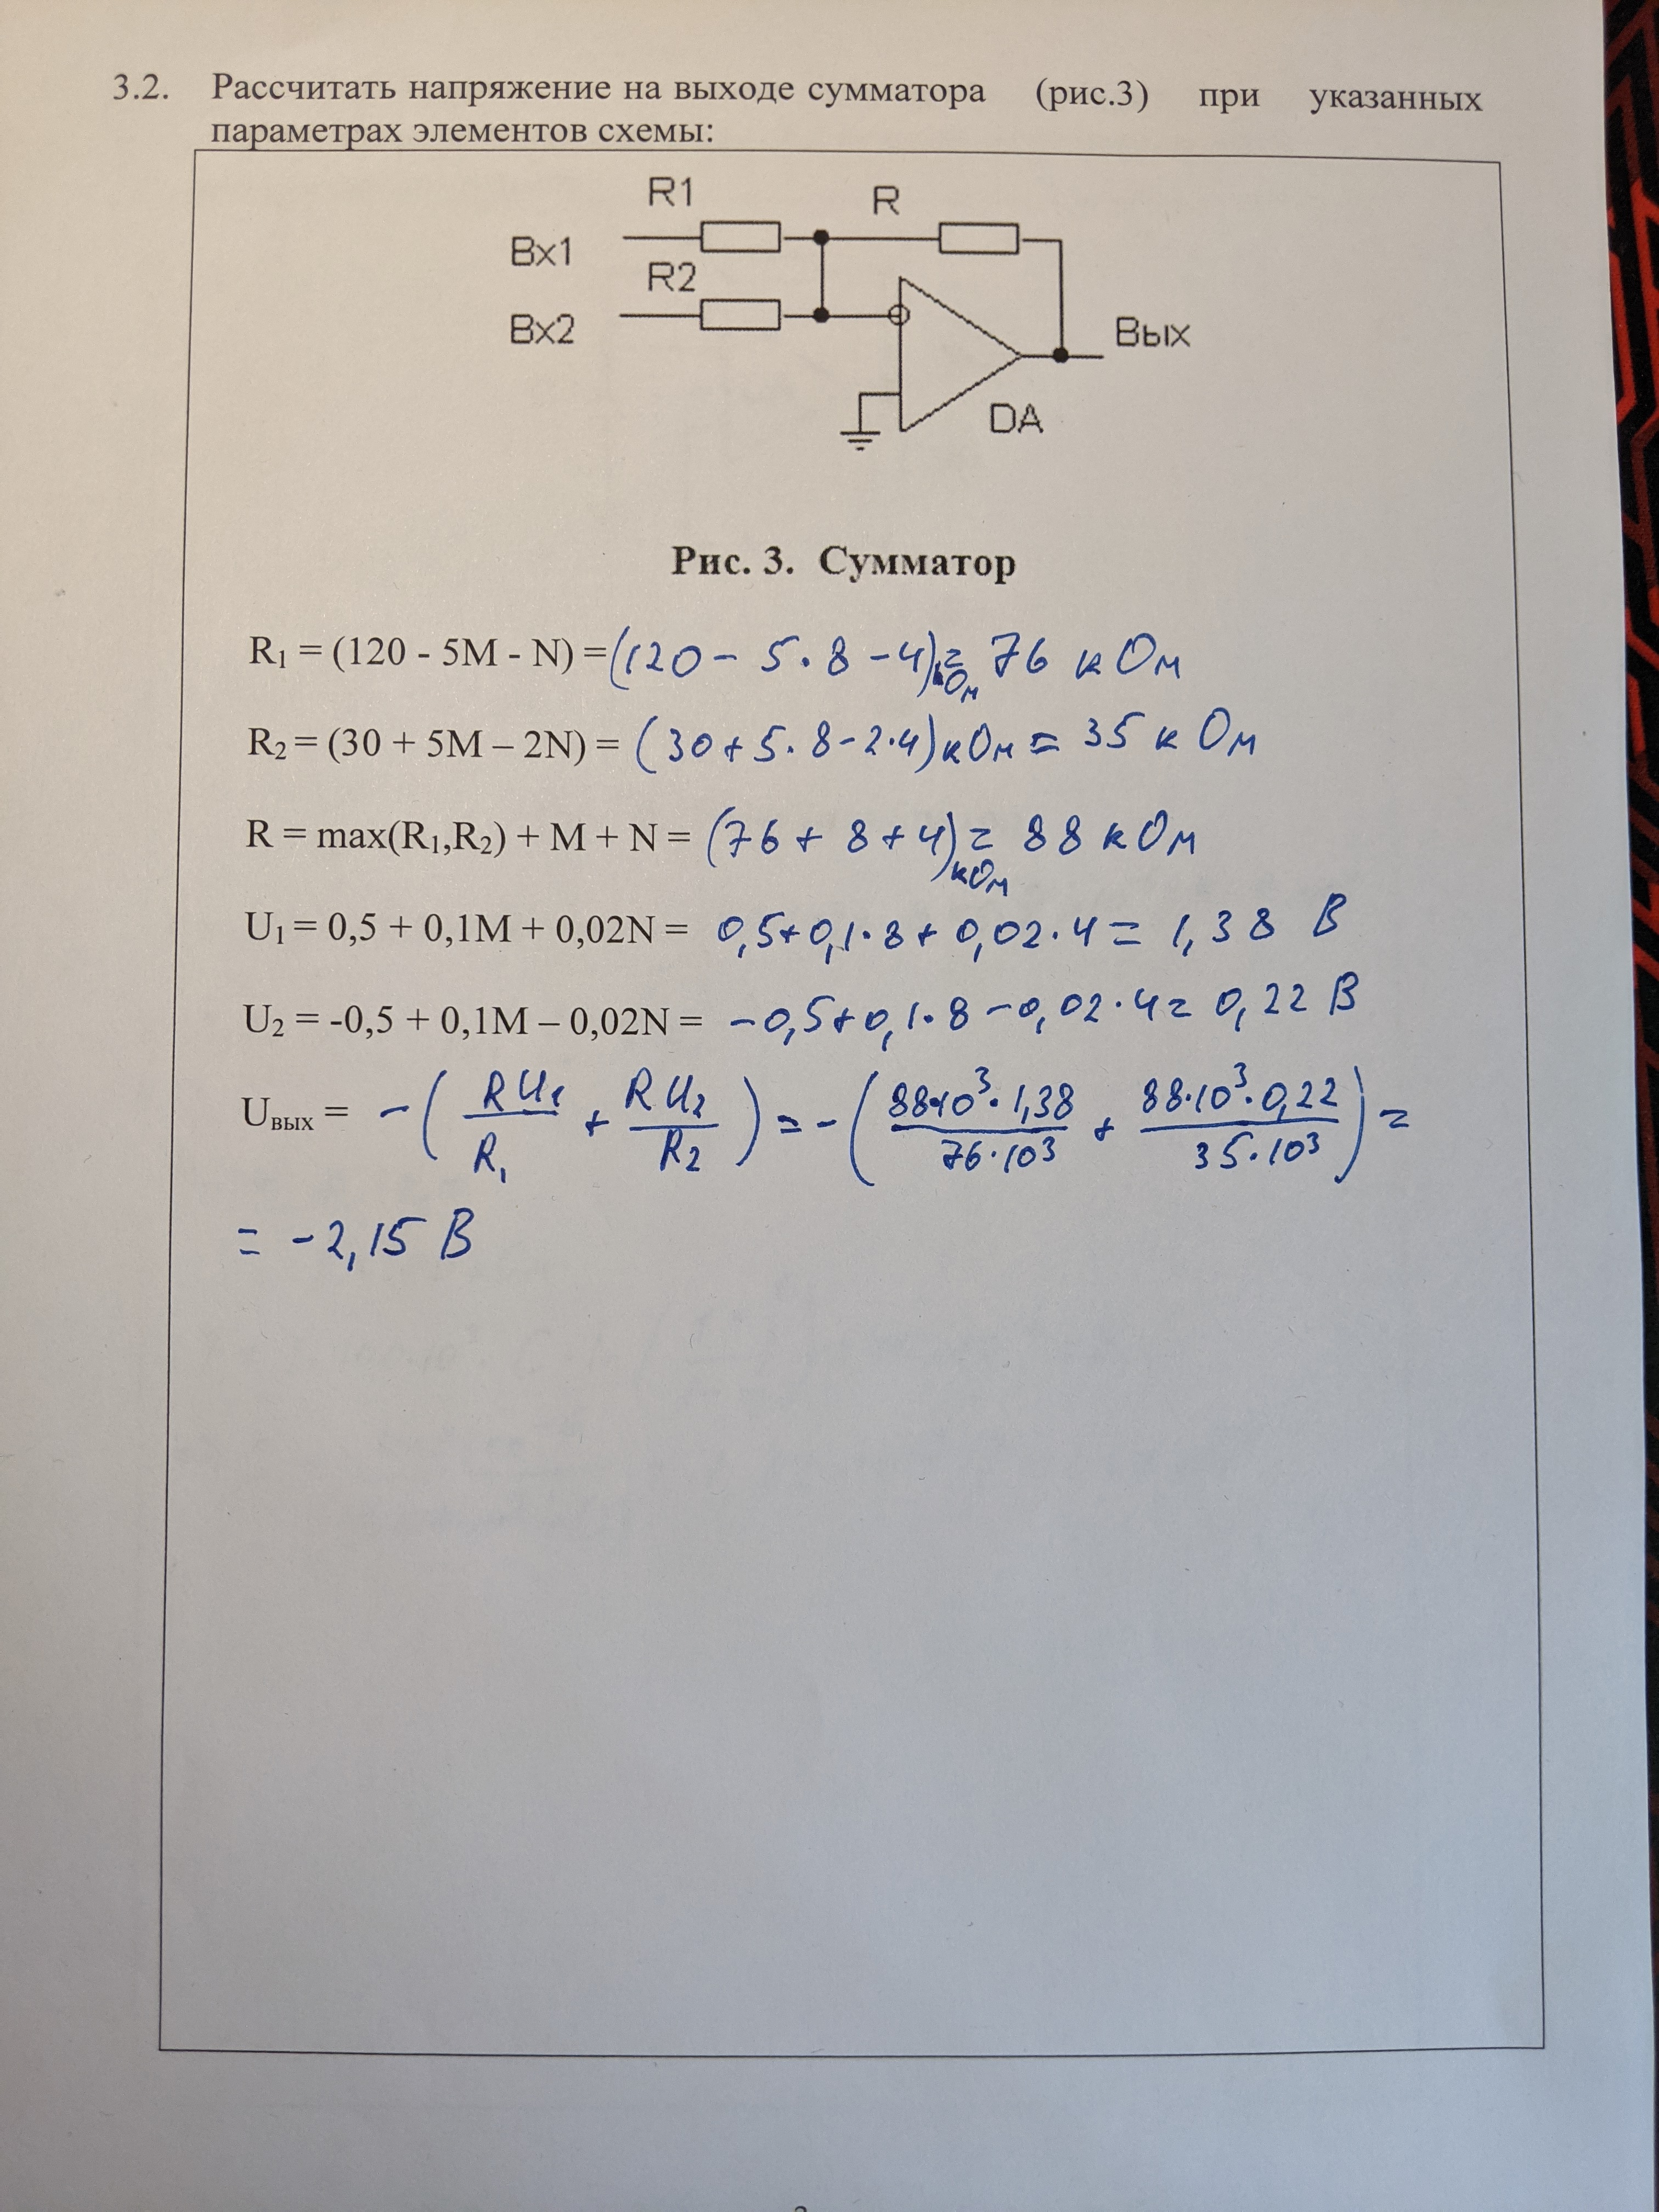 3.2. Рассчитать напряжение на выходе сумматора (рис.3) при указанных
параметрах элементов схемы:
R1 R
Вх1
R2
Вх2 Вых
DA
Рис. 3. Сумматор
R₁ = (120 - 5M - N) = (120 - 5·8 - 4) кОм = 76 кОм
R₂ = (30 + 5M – 2N) = (30 + 5·8 - 2·4) кОм = 35 кОм
R = max(R₁,R₂) + M + N = (76 + 8 + 4) кОм = 88 кОм
U₁ = 0,5 + 0,1M + 0,02N = 0,5 + 0,1·8 + 0,02·4 = 1,38 В
U₂ = -0,5 + 0,1M – 0,02N = -0,5 + 0,1·8 - 0,02·4 = 0,22 В
Uвых = -(RU₁/R₁ + RU₂/R₂) = -(88·10³·1,38/76·10³ + 88·10³·0,22/35·10³) =
= -2,15 В